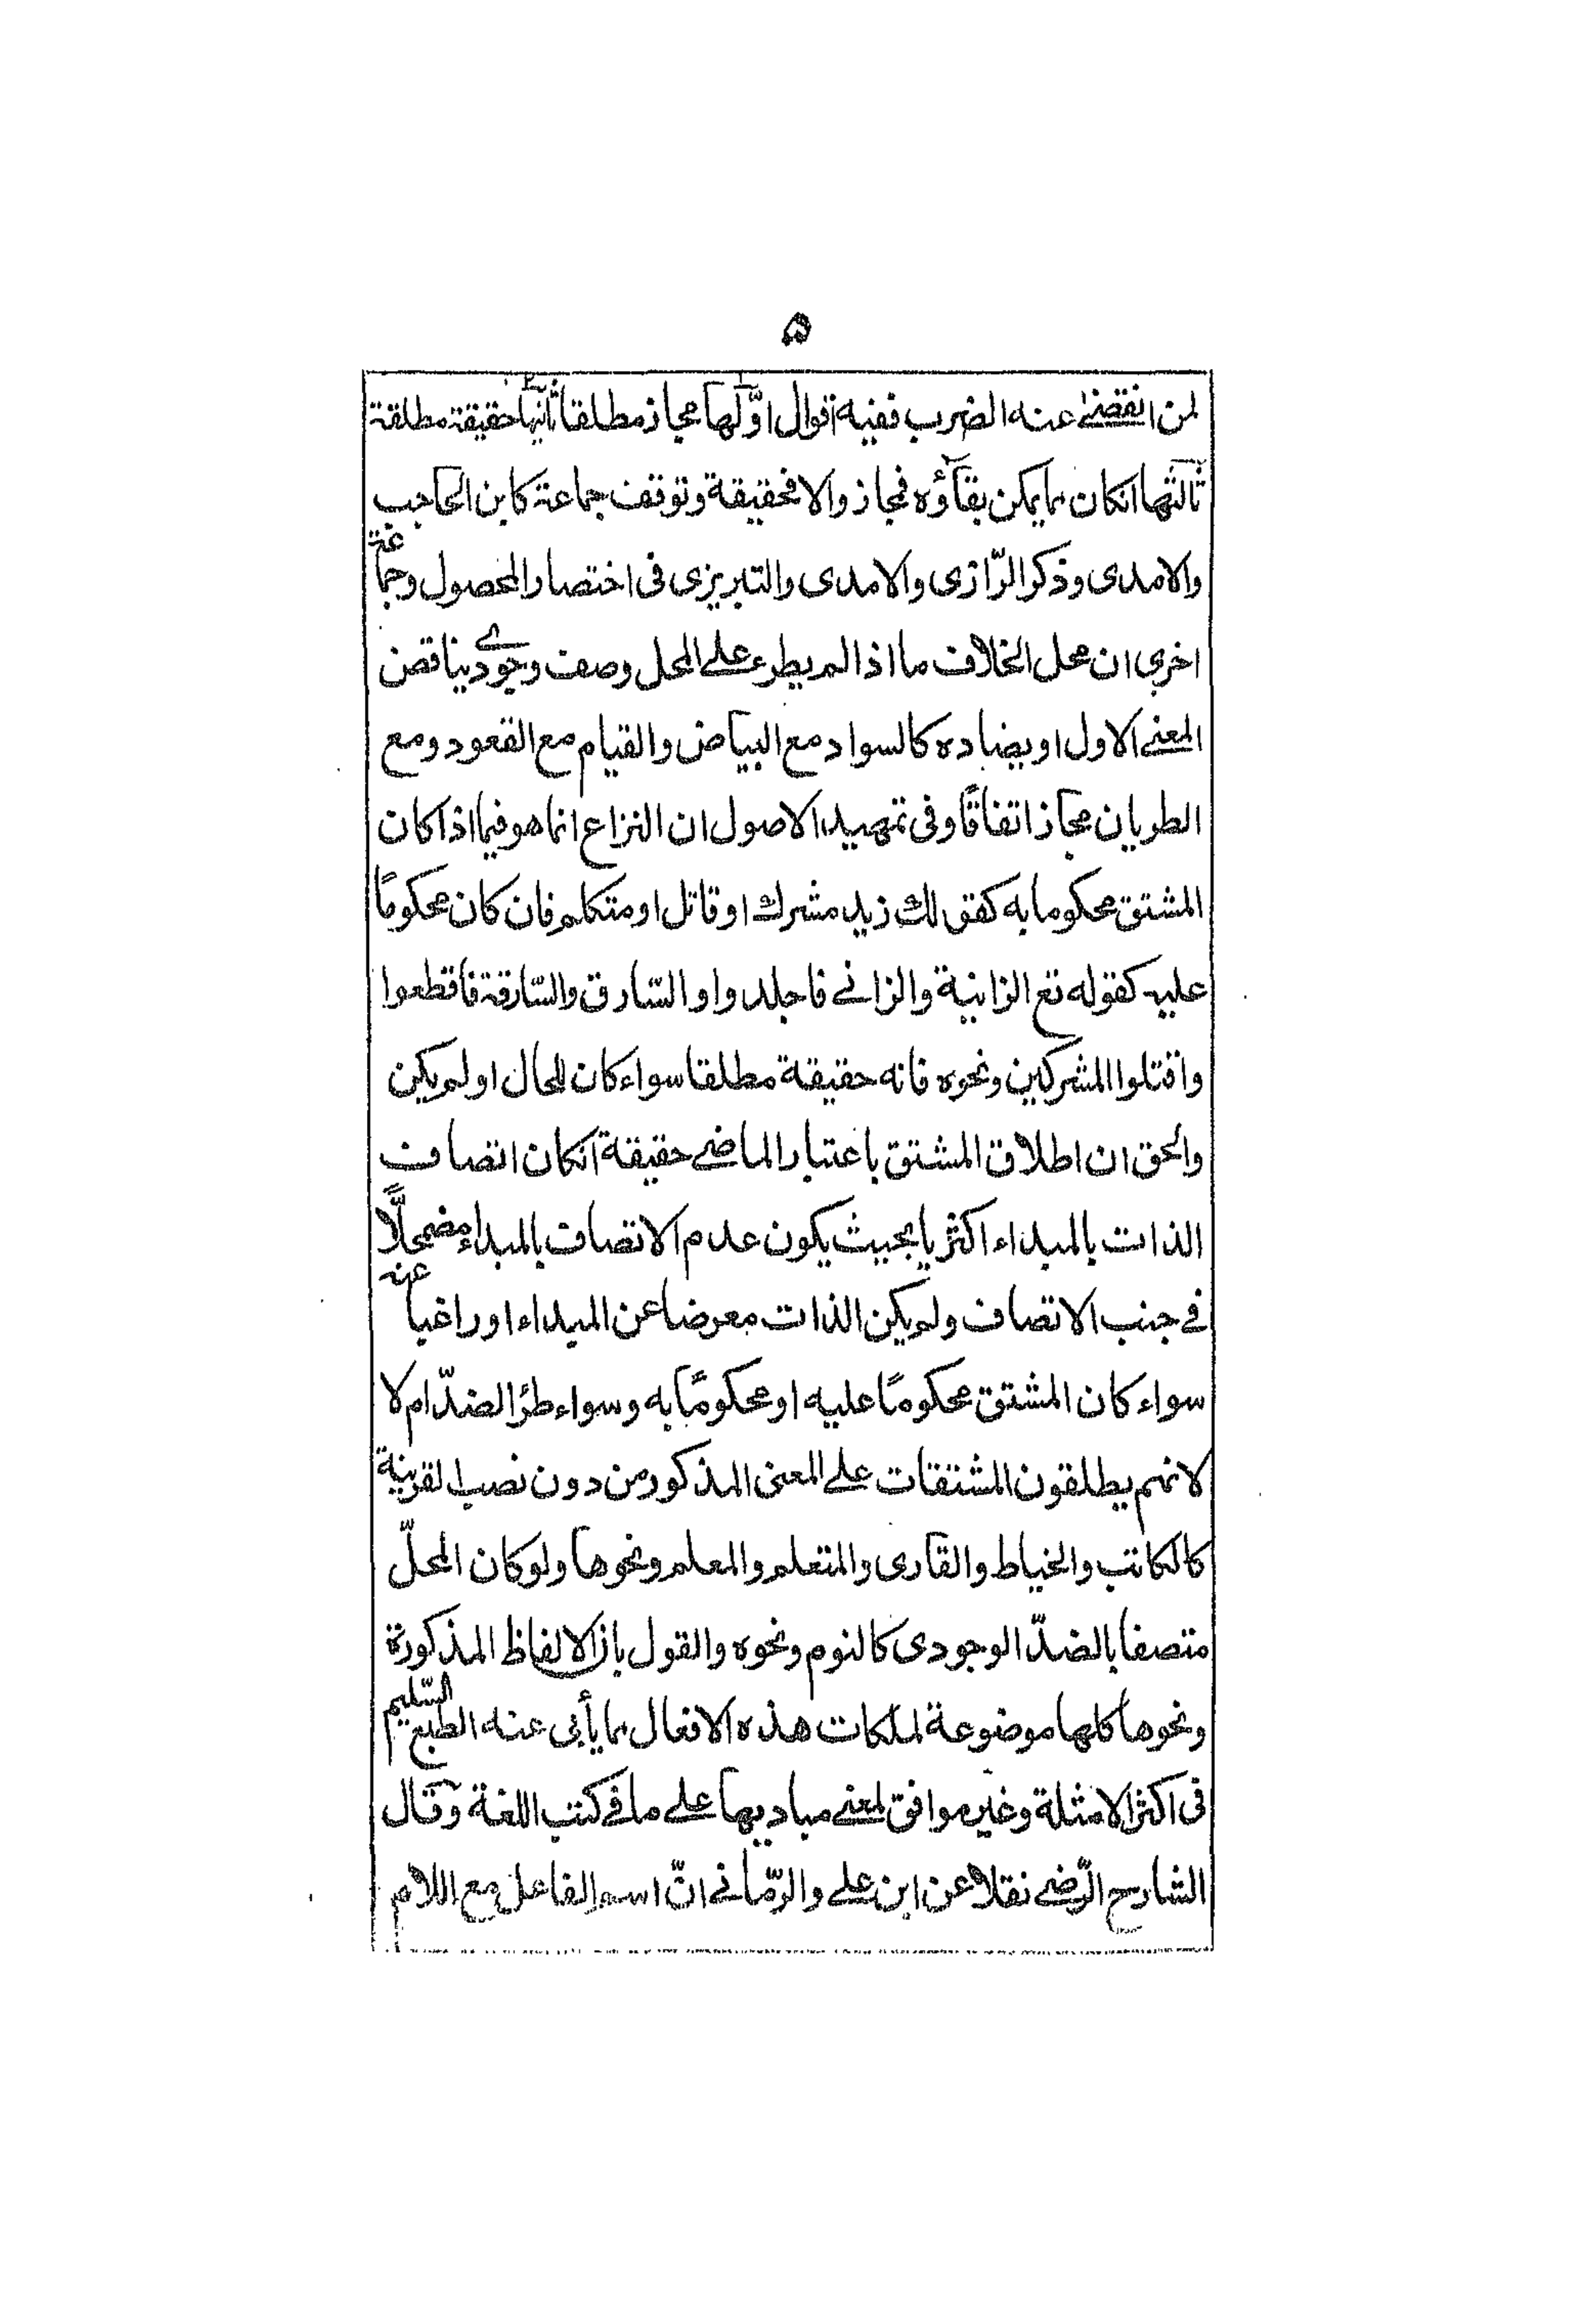 ۵
لمن انقضى عنه الضرب ففيه اقوال اوّلها مجاز مطلقا ثانيها حقيقة مطلقة
ثالثها انكان مما يمكن بقاؤه فمجاز والا فحقيقة وتوقف جماعة كابن الحاجب
والامدى وذكر الرّازى والامدى والتبريزى فى اختصار المحصول وجماعة
اخرى ان محل الخلاف ما اذا لم يطرء على المحل وصف وجودى يناقض
المعنى الاول او يضاده كالسواد مع البياض والقيام مع القعود ومع
الطريان مجاز اتفاقًا وفى تمهيد الاصول ان النزاع انما هو فيما اذا كان
المشتق محكوما به كقولك زيد مشرك او قاتل او متكلم فان كان محكومًا
عليه كقوله تع الزانية والزانى فاجلدوا والسّارق والسّارقة فاقطعوا
واقتلوا المشركين ونحوه فانه حقيقة مطلقا سواء كان للحال او لم يكن
والحق ان اطلاق المشتق باعتبار الماضى حقيقة انكان اتصاف
الذات بالمبداء اكثريا بحيث يكون عدم الاتصاف بالمبداء مضمحلًّا
فى جنب الاتصاف ولم يكن الذات معرضا عن المبداء او راغبا عنه
سواء كان المشتق محكومًا عليه او محكومًا به وسواء طرأ الضدّ ام لا
لانهم يطلقون المشتقات على المعنى المذكور من دون نصب القرينة
كالكاتب والخياط والقارى والمتعلم والمعلم ونحوها ولو كان المحلّ
متصفا بالضدّ الوجودى كالنوم ونحوه والقول بان الالفاظ المذكورة
ونحوها كلها موضوعة لملكات هذه الافعال مما يأبى عنه الطبع السّليم
فى اكثر الامثلة وغير موافق لمعنى مباديها على ما فى كتب اللغة وقال
الشارح الرّضى نقلا عن ابن على والرّمانى انّ اسم الفاعل مع اللام